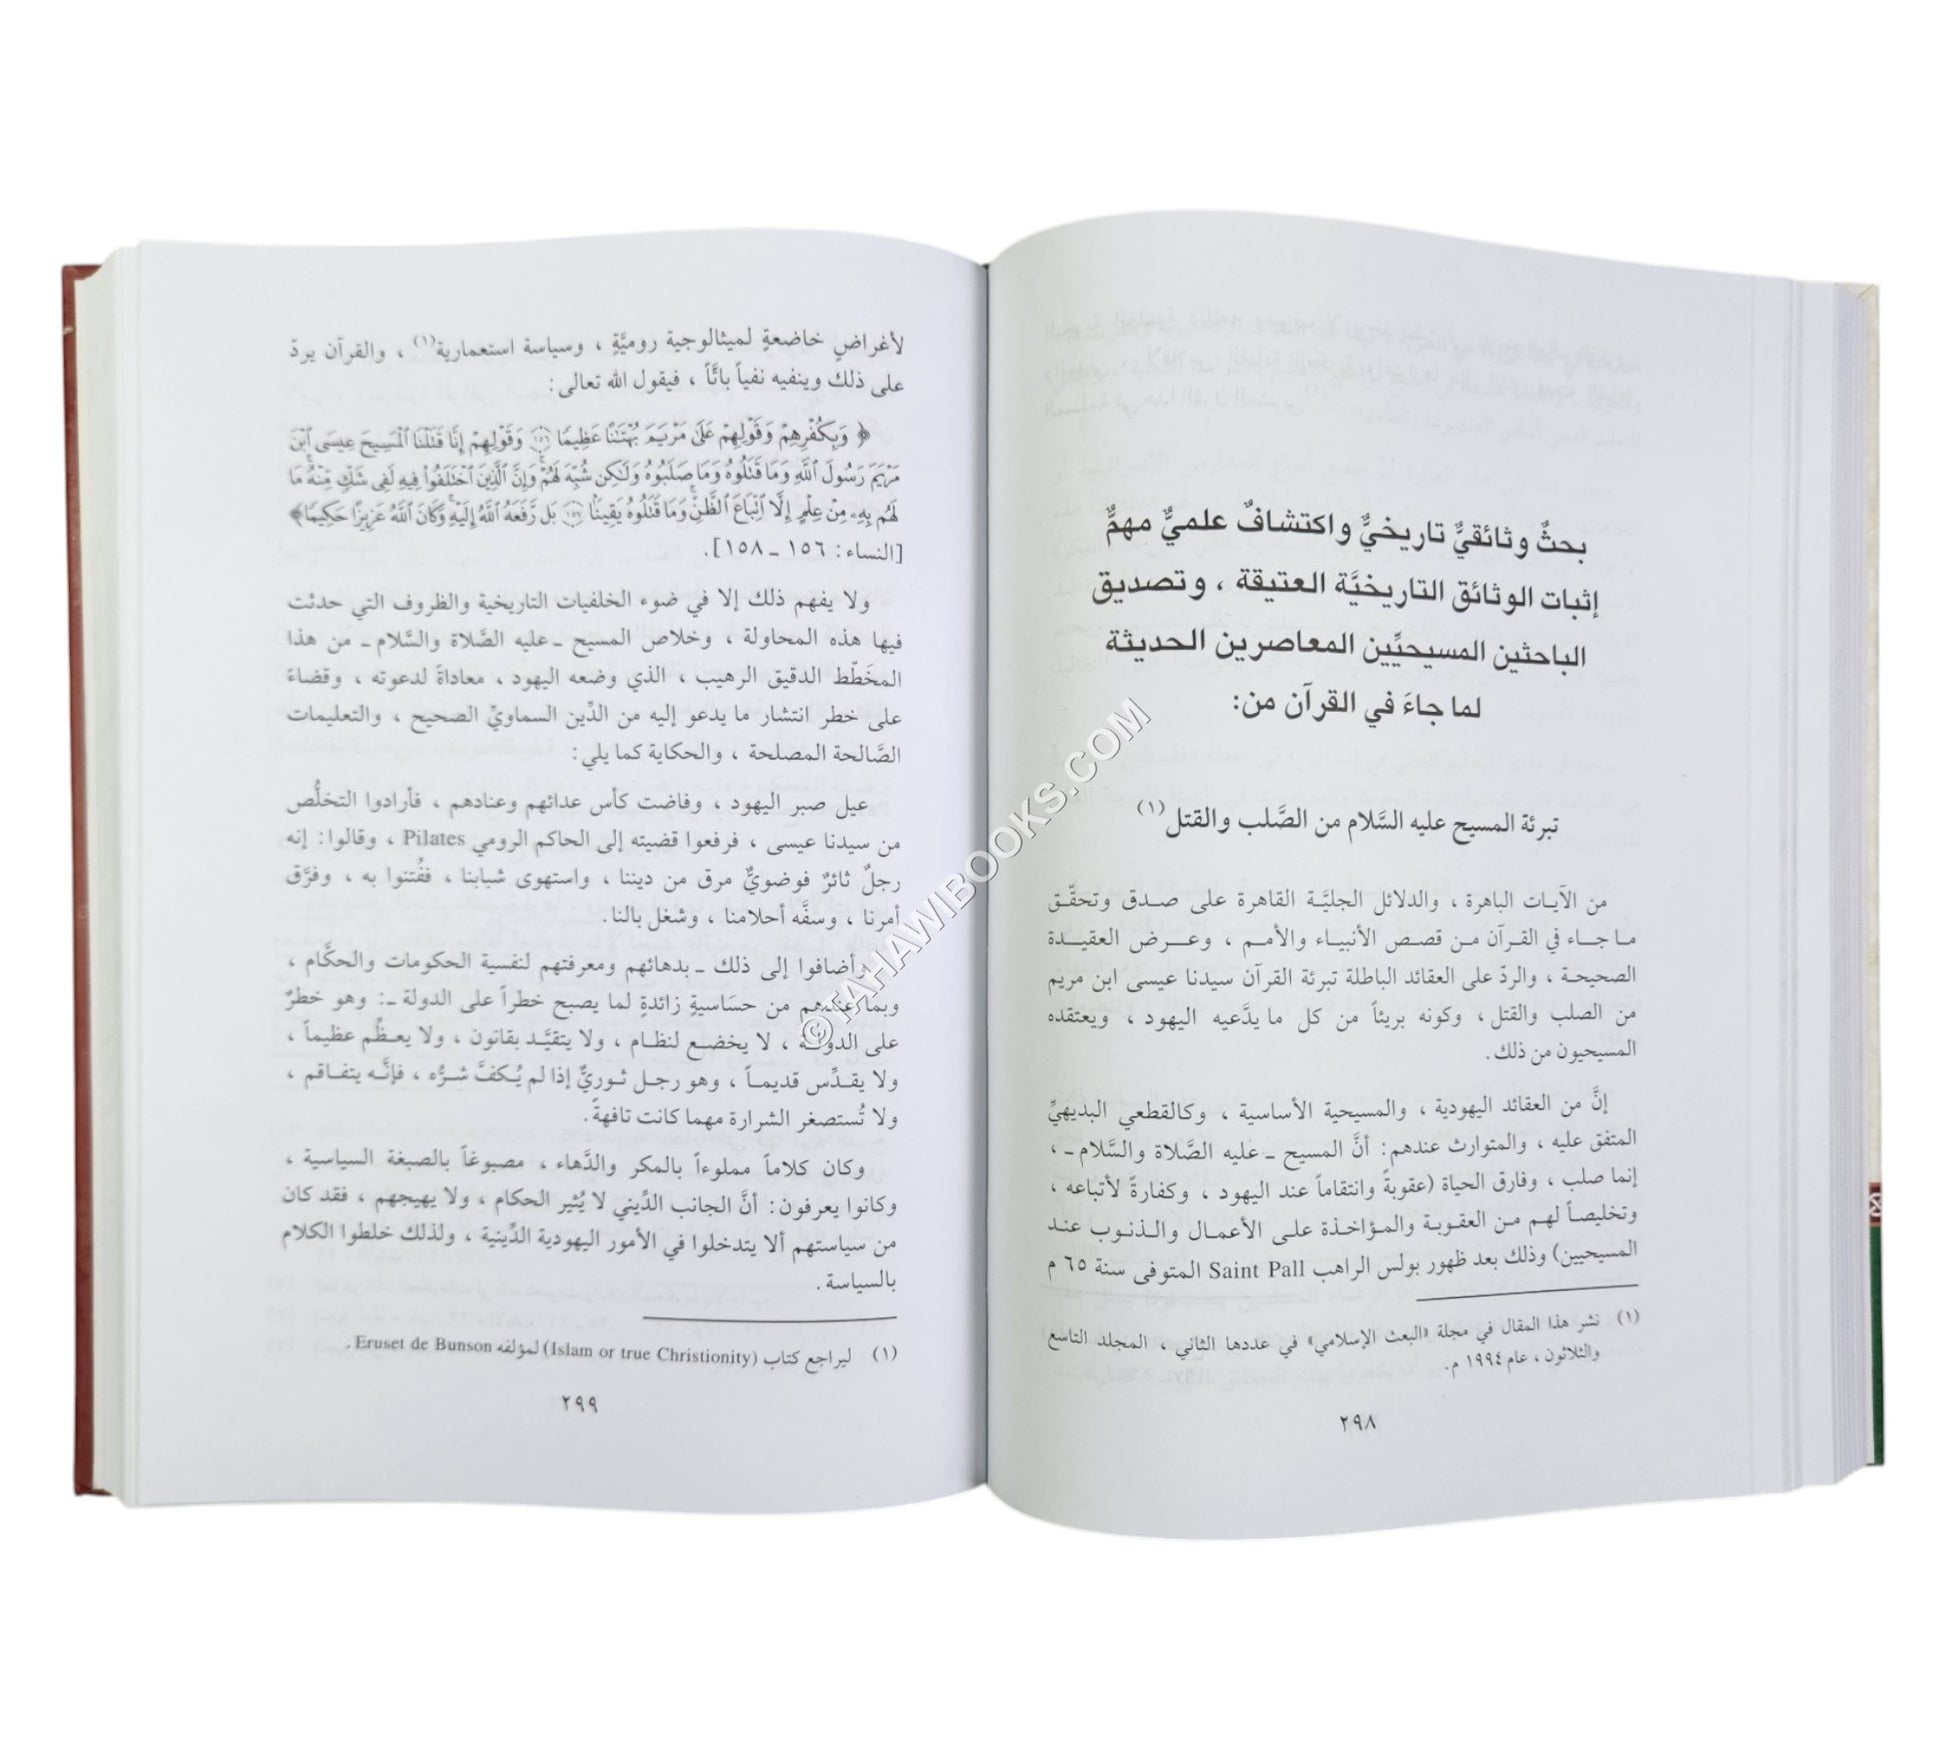 بحثٌ وثائقيٌّ تاريخيٌّ واكتشافٌ علميٌّ مهمٌّ
إثبات الوثائق التاريخيَّة العتيقة ، وتصديق
الباحثين المسيحيِّين المعاصرين الحديثة
لما جاءَ في القرآن من:
تبرئة المسيح عليه السَّلام من الصَّلب والقتل(١)
من الآيـات الباهرة ، والدلائل الجليَّـة القاهرة علـى صـدق وتحقّـق
مـا جـاء في القرآن مـن قصـص الأنبيـاء والأمـم ، وعـرض العقيـدة
الصحيحـة ، والردّ على العقائد الباطلة تبرئة القرآن سيدنا عيسى ابن مريم
من الصلب والقتل ، وكونه بريئاً من كل ما يدَّعيه اليهود ، ويعتقده
المسيحيون من ذلك.
إنَّ من العقائد اليهودية ، والمسيحية الأساسية ، وكالقطعي البديهيِّ
المتفق عليه ، والمتوارث عندهم: أنَّ المسيح ـ عليه الصَّلاة والسَّلام ـ ،
إنما صلب ، وفارق الحياة (عقوبةً وانتقاماً عند اليهود ، وكفارةً لأتباعه ،
وتخليصـاً لهـم مـن العقوبـة والمـؤاخـذة علـى الأعمـال والـذنـوب عنـد
المسيحيين) وذلك بعد ظهور بولس الراهب Saint Pall المتوفى سنة ٦٥ م
(١) نشر هذا المقال في مجلة «البعث الإسلامي» في عددها الثاني ، المجلد التاسع
والثلاثون ، عام ١٩٩٤ م.
٢٩٨
لأغراضٍ خاضعةٍ لميثالوجية روميَّةٍ ، وسياسة استعمارية(١) ، والقرآن يردّ
على ذلك وينفيه نفياً باتَّاً ، فيقول الله تعالى:
﴿ وَبِكُفْرِهِمْ وَقَوْلِهِمْ عَلَىٰ مَرْيَمَ بُهْتَٰنًا عَظِيمًا ١٥٦ وَقَوْلِهِمْ إِنَّا قَتَلْنَا ٱلْمَسِيحَ عِيسَى ٱبْنَ
مَرْيَمَ رَسُولَ ٱللَّهِ وَمَا قَتَلُوهُ وَمَا صَلَبُوهُ وَلَٰكِن شُبِّهَ لَهُمْ ۚ وَإِنَّ ٱلَّذِينَ ٱخْتَلَفُوا۟ فِيهِ لَفِى شَكٍّ مِّنْهُ ۚ مَا
لَهُم بِهِۦ مِنْ عِلْمٍ إِلَّا ٱتِّبَاعَ ٱلظَّنِّ ۚ وَمَا قَتَلُوهُ يَقِينًۢا ١٥٧ بَل رَّفَعَهُ ٱللَّهُ إِلَيْهِ ۚ وَكَانَ ٱللَّهُ عَزِيزًا حَكِيمًا﴾
[النساء: ١٥٦ ـ ١٥٨].
ولا يفهم ذلك إلا في ضوء الخلفيات التاريخية والظروف التي حدثت
فيها هذه المحاولة ، وخلاص المسيح ـ عليه الصَّلاة والسَّلام ـ من هذا
المخَطّط الدقيق الرهيب ، الذي وضعه اليهود ، معاداةً لدعوته ، وقضاءً
على خطر انتشار ما يدعو إليه من الدِّين السماويِّ الصحيح ، والتعليمات
الصَّالحة المصلحة ، والحكاية كما يلي:
عيل صبر اليهود ، وفاضت كأس عدائهم وعنادهم ، فأرادوا التخلُّص
من سيدنا عيسى ، فرفعوا قضيته إلى الحاكم الرومي Pilates ، وقالوا: إنه
رجلٌ ثائرٌ فوضويٌّ مرق من ديننا ، واستهوى شبابنا ، ففُتنوا به ، وفرَّق
أمرنا ، وسفَّه أحلامنا ، وشغل بالنا.
وأضافوا إلى ذلك ـ بدهائهم ومعرفتهم لنفسية الحكومات والحكَّام ،
وبما عندهم من حسَاسيةٍ زائدةٍ لما يصبح خطراً على الدولة ـ: وهو خطرٌ
على الدولـة ، لا يخضـع لنظـام ، ولا يتقيَّـد بقانون ، ولا يعـظِّم عظيمـاً ،
ولا يقـدِّس قديمـاً ، وهو رجـل ثـوريٌّ إذا لم يُـكفَّ شـرُّه ، فإنَّـه يتفـاقم ،
ولا تُستصغر الشرارة مهما كانت تافهةً.
وكان كلاماً مملوءاً بالمكر والدَّهاء ، مصبوغاً بالصبغة السياسية ،
وكانوا يعرفون: أنَّ الجانب الدِّيني لا يُثير الحكام ، ولا يهيجهم ، فقد كان
من سياستهم ألا يتدخلوا في الأمور اليهودية الدِّينية ، ولذلك خلطوا الكلام
بالسياسة.
(١) ليراجع كتاب (Islam or true Christionity) لمؤلفه Eruset de Bunson .
٢٩٩
©TAHAWIBOOKS.COM